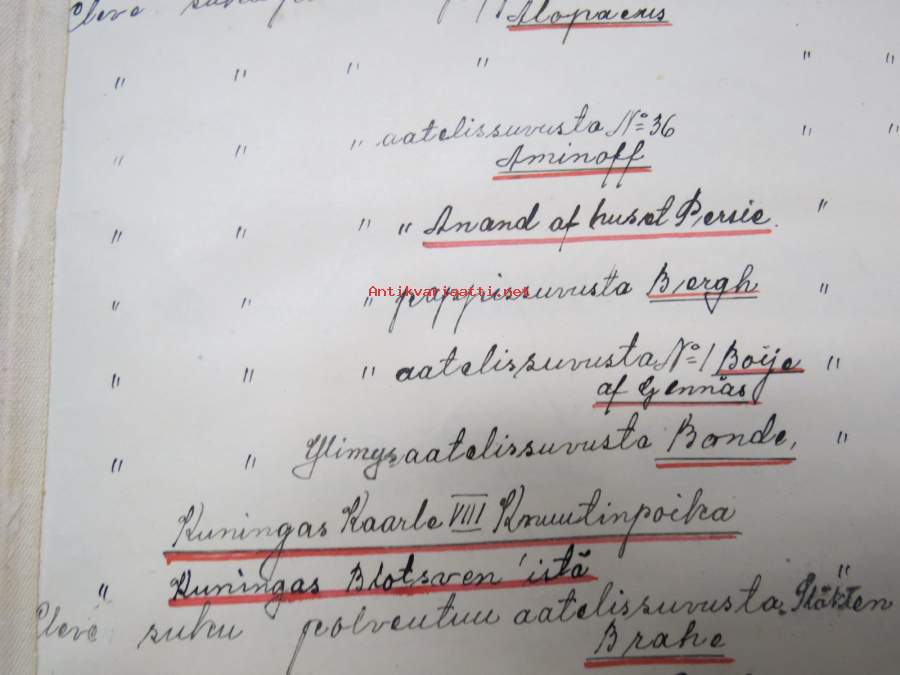 Cleve suku Alopaeus
" " " " " "
" " " aatelissuvusta No 36 " "
Aminoff
" " " " Anand af huset Persie "
Antikvariaatti.net
" " " pappissuvusta Bergh "
" " " aatelissuvusta No 1 Boije "
af Gennäs
" " Ylimysaatelissuvusta Bonde, "
Kuningas Kaarle VIII Knuutinpoika
" Kuningas Blotsven'istä "
Cleve suku polveutuu aatelissuvusta Släkten
Brahe